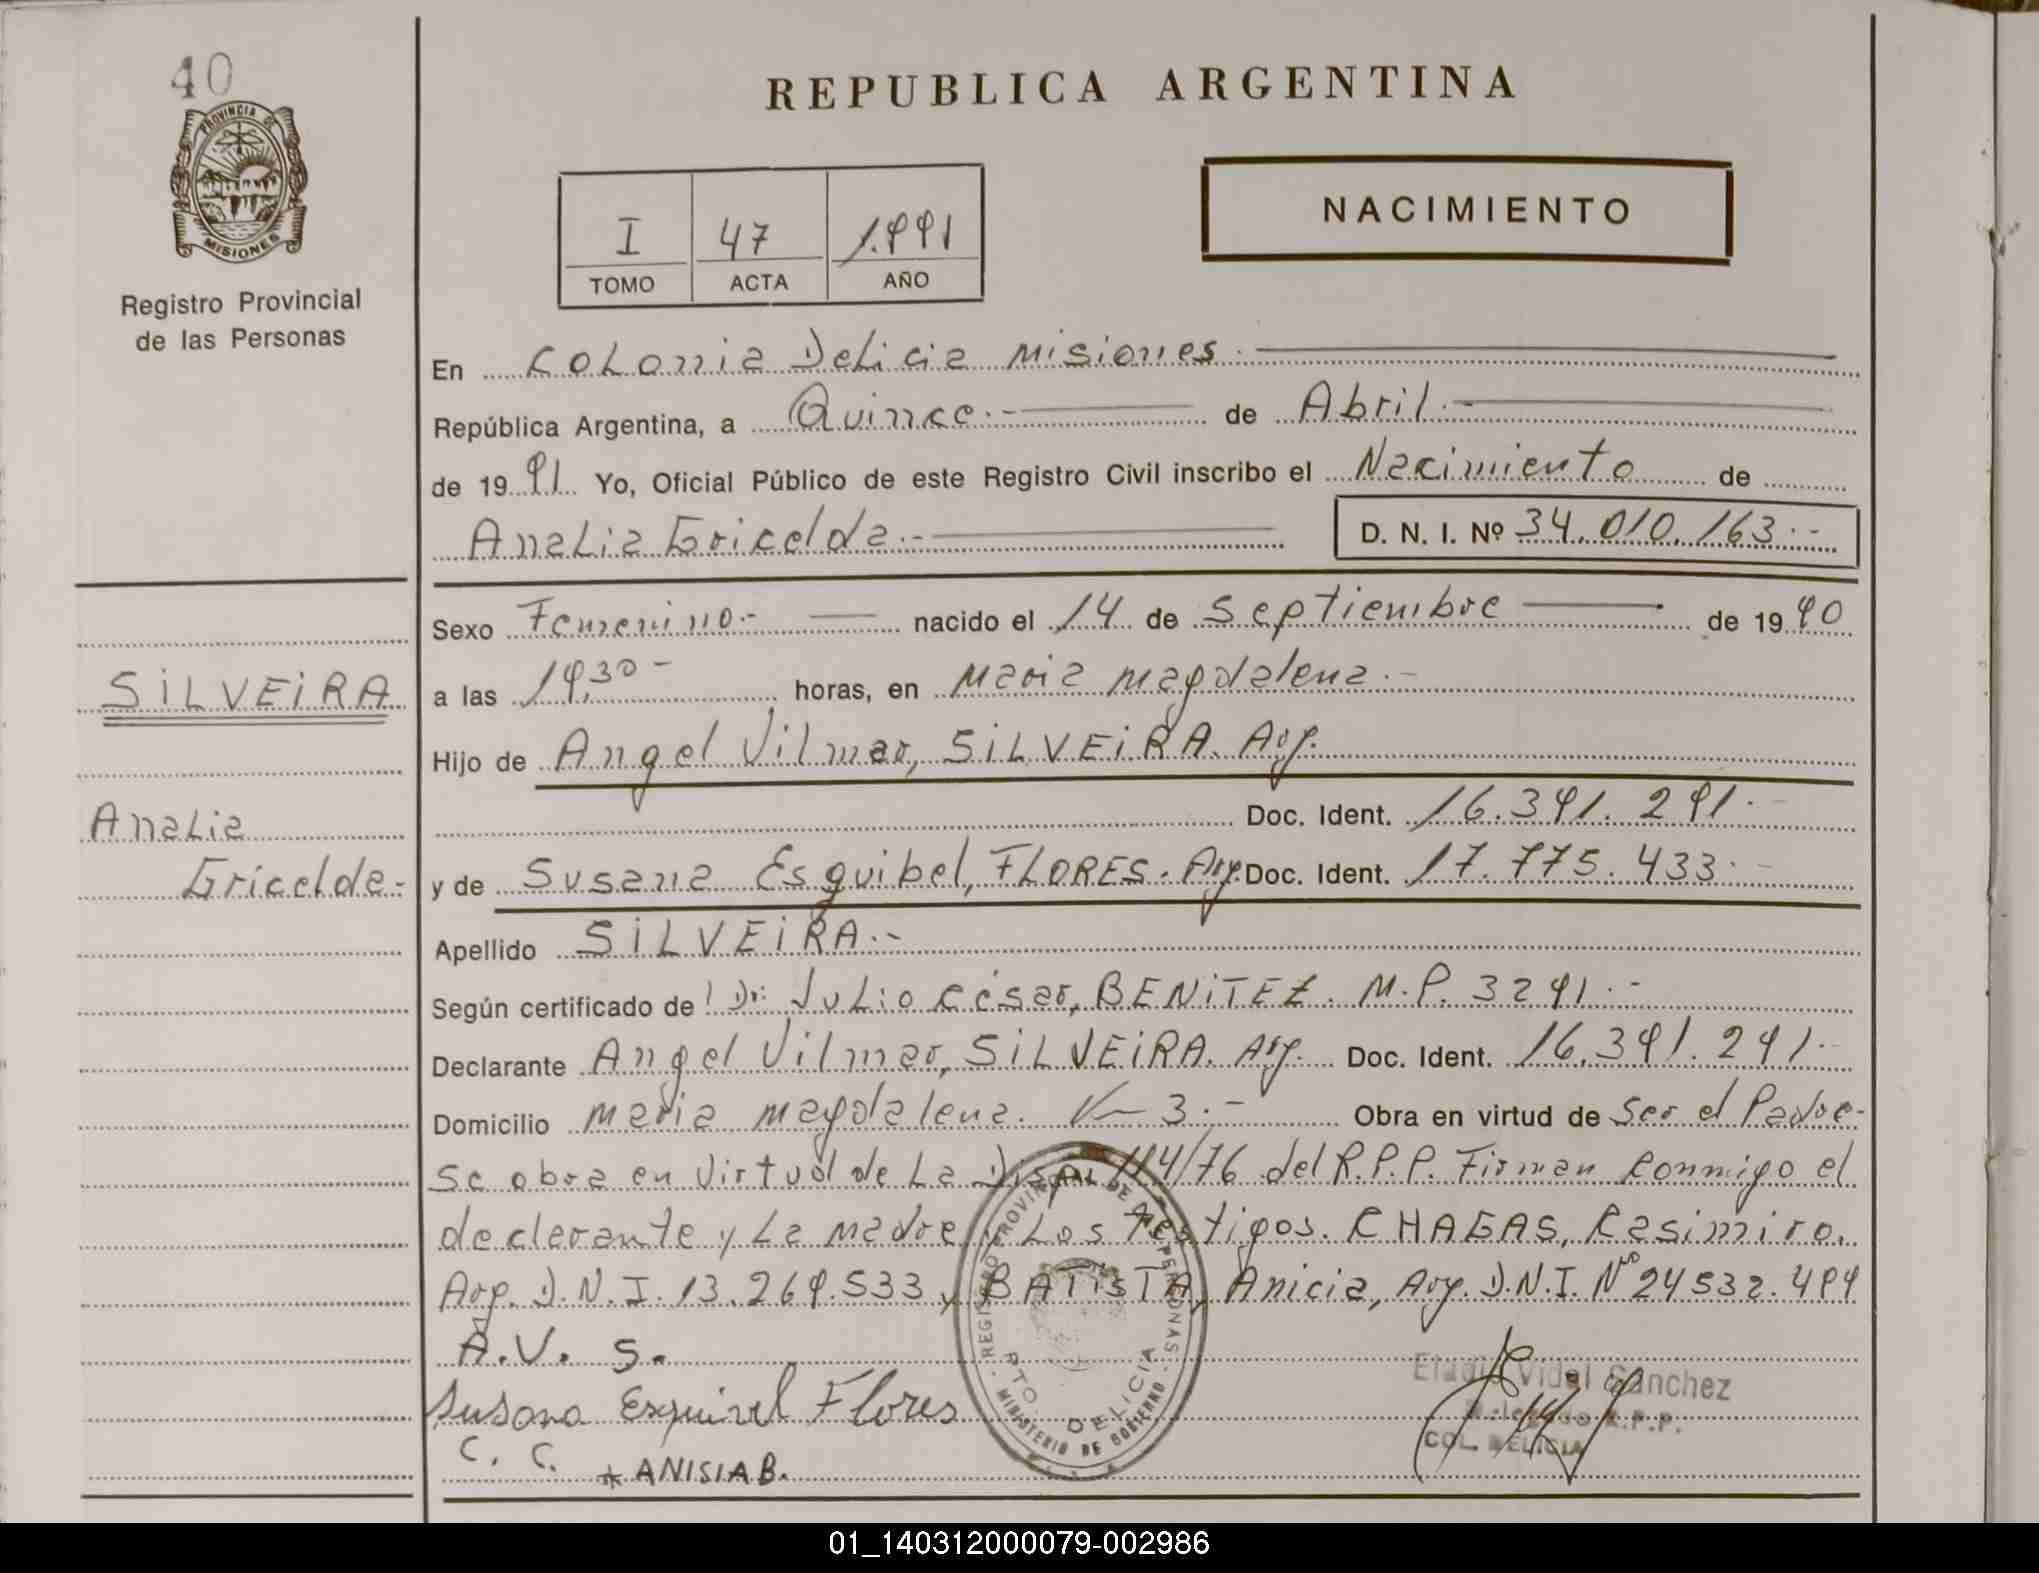 40
PROVINCIA DE
MISIONES
Registro Provincial
de las Personas
REPUBLICA ARGENTINA
I 47 1.991
TOMO ACTA AÑO
NACIMIENTO
En Colonia Delicia Misiones.
República Argentina, a Quince.- de Abril.-
de 1991 Yo, Oficial Público de este Registro Civil inscribo el Nacimiento de
Analia Gricelda.- D. N. I. Nº 34.010.163.-
Sexo Femenino.- nacido el 14 de Septiembre de 1990
SILVEIRA
a las 19,30- horas, en Maria Magdalena.-
Hijo de Angel Vilmar, SILVEIRA. Arg.
Analia
Doc. Ident. 16.391.291.-
Gricelda.-
y de Susana Esquibel, FLORES. Arg. Doc. Ident. 17.775.433.-
Apellido SILVEIRA.-
Según certificado de Dr: Julio César, BENITEZ. M.P. 3291.-
Declarante Angel Vilmar, SILVEIRA. Arg. Doc. Ident. 16.391.291.-
Domicilio Maria Magdalena. K-3.- Obra en virtud de Ser el Padre-
se obra en Virtud de La Disp. 114/76 del R.P.P. Firman Conmigo el
declarante y La Madre y Los Testigos. CHAGAS, Casimiro.
Arg. D.N.I. 13.269.533 y BATISTA, Anicia, Arg. D.N.I. Nº 24532.499
A.V. S.
Susana Esquivel Flores
C. C.
ANISIA B.
REGISTRO PROVINCIAL DE LAS PERSONAS
PTO. DELICIA
MINISTERIO DE GOBIERNO
Eladio Vidal Sánchez
Delegado R.P.P.
COL. DELICIA
01_140312000079-002986